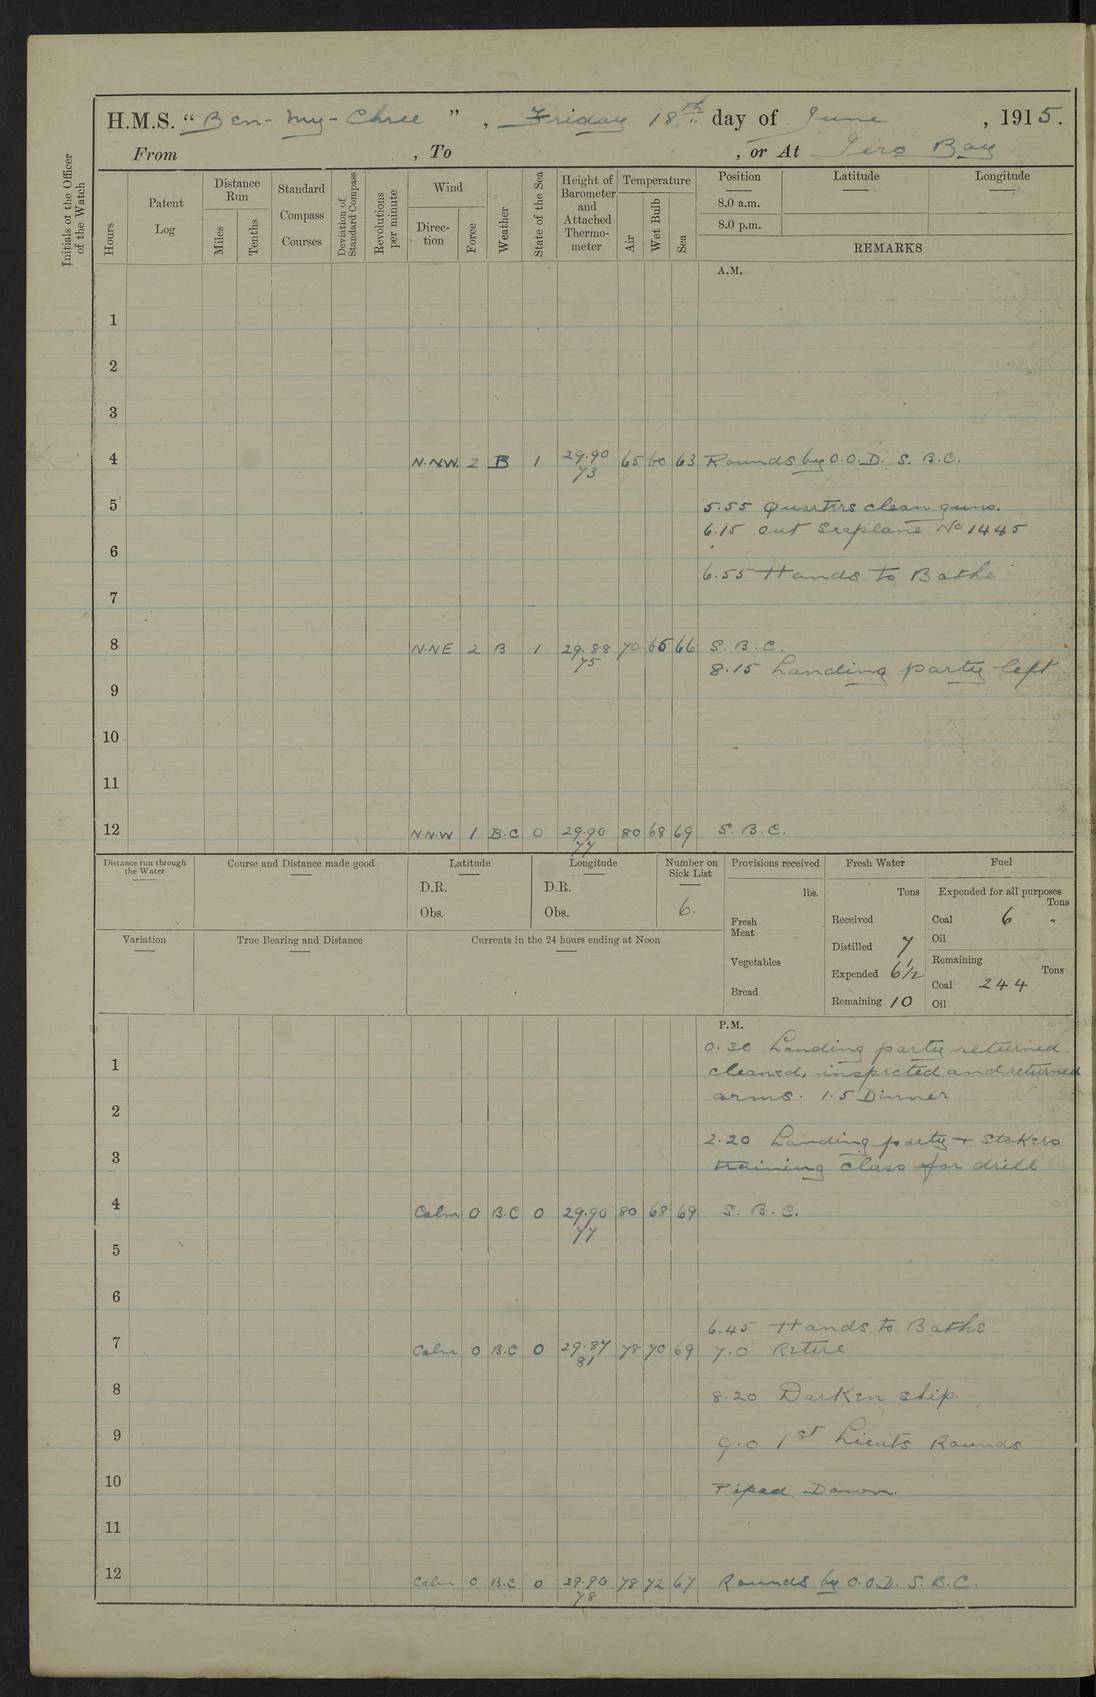 H.M.S. “Ben-my-Chree”, Friday 18th day of June, 1915.
From , To , or At Iero Bay
Initials of the Officer of the Watch
Hours
Patent Log
Distance Run
Miles
Tenths
Standard Compass Courses
Deviation of Standard Compass
Revolutions per minute
Wind
Direction
Force
Weather
State of the Sea
Height of Barometer and Attached Thermometer
Temperature
Air
Wet Bulb
Sea
Position
8.0 a.m.
8.0 p.m.
Latitude
Longitude
REMARKS
A.M.
1
2
3
4 N.NW. 2 B 1 29.90 73 65 60 63 Rounds by O.O.D. S. B.C.
5 5.55 Quarters clean guns.
6.15 out Seaplane No 1445
6
6.55 Hands to Bathe
7
8 N.NE 2 B 1 29.88 75 70 65 66 S. B.C.
8.15 Landing party left
9
10
11
12 N.N.W 1 B.C 0 29.90 77 80 68 69 S. B.C.
Distance run through the Water
Course and Distance made good
Latitude
D.R.
Obs.
Longitude
D.R.
Obs.
Number on Sick List
6.
Provisions received
lbs.
Fresh Meat
Vegetables
Bread
Fresh Water
Tons
Received
Distilled 7
Expended 6½
Remaining 10
Fuel
Expended for all purposes
Tons
Coal 6 "
Oil
Remaining
Tons
Coal 244
Oil
Variation
True Bearing and Distance
Currents in the 24 hours ending at Noon
P.M.
0.30 Landing party returned
1 cleaned, inspected and returned
arms. 1.5 Dinner
2
2.20 Landing party + Stokers
3 training class for drill
4 Calm 0 B.C 0 29.90 77 80 68 69 S. B.C.
5
6
6.45 Hands to Bathe
7 Calm 0 B.C 0 29.87 81 78 70 69 7.0 Retire
8 8.20 Darken ship.
9 9.0 1st Lieuts Rounds
10 Piped Down.
11
12 Calm 0 B.C 0 29.90 78 78 72 67 Rounds by O.O.D. S.B.C.